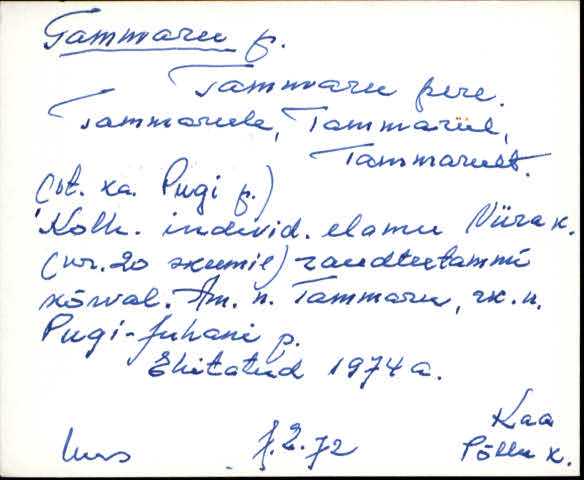 Tammaru p.
Tammaru pere.
Tammarule, Tammarul,
Tammarult.
(vt. ka. Pugi p.)
Kolh. individ. elamu Viira k.
(nr. 20 skeemil) raudteetammi
kõrval. Am. n. Tammaru, rk. n.
Pugi-Juhani p.
Ehitatud 1974 a.
Kaa
Põllu k.